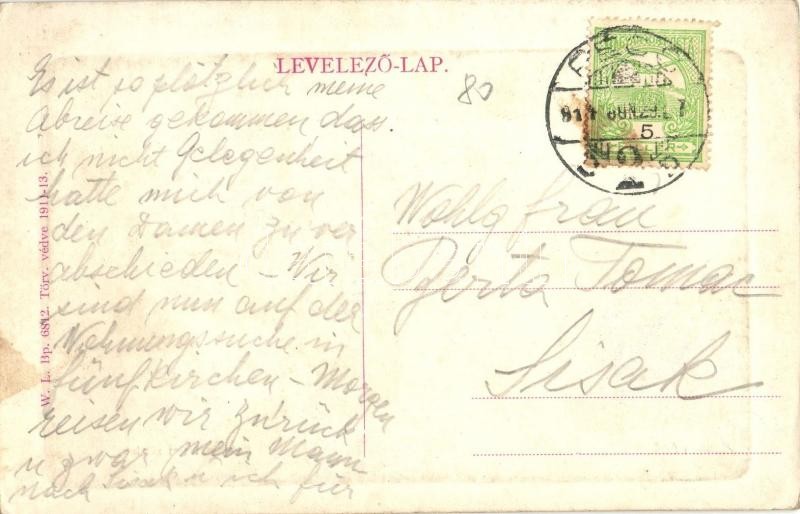 LEVELEZŐ-LAP.
80
Es ist so plötzlich meine
Abreise gekommen dass
ich nicht Gelegenheit
hatte mich von
den Damen zu ver
abschieden – Wir
sind nun auf der
Wohnungssuche in
fünfkirchen – Morgen
reisen wir zurück
u zwar mein Mann
nach Sisak u ich für
W. L. Bp. 6812. Törv. védve 1911-13.
914 JUN 29.
5
Wohlg frau
Berta Tomac
Sisak